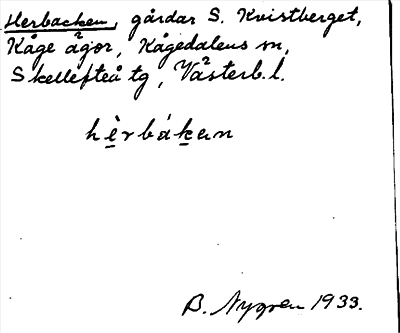 Herbacken, gårdar S. Kvistberget,
Kåge ägor, Kågedalens sn,
Skellefteå tg, Västerb. l.
hèrbákan
B. Nygren 1933.